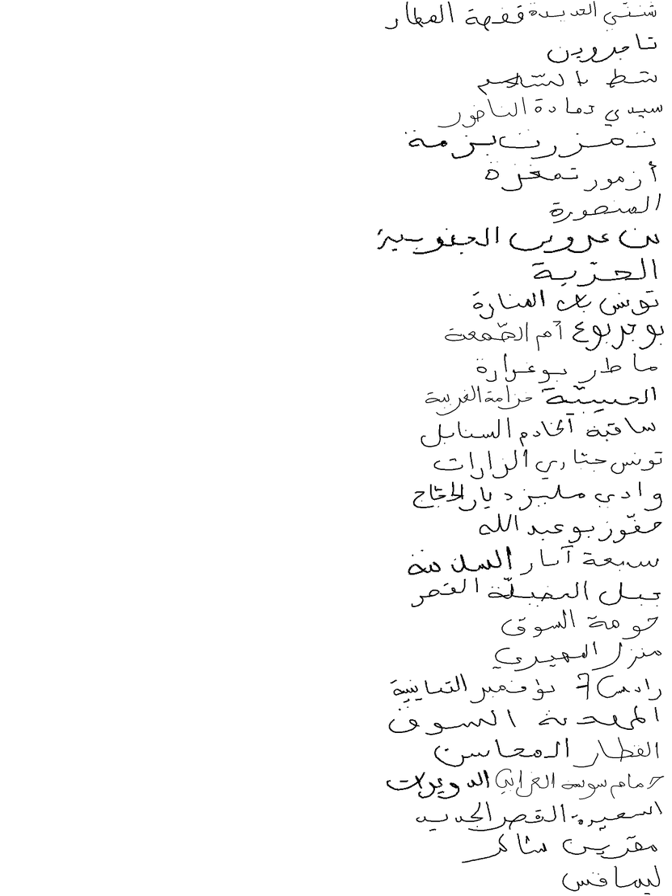 شنني الجديدة قفصة المطار
تاجروين
شط السلام
سيدي حمادة الناظور
تمزرت بزمة
أزمور تمغزة
المنصورة
بن عروس الجنوبية
العزبة
تونس باب المنارة
بوجربوع أم الصمعة
ماطر بوغرارة
الحبيبية حزامة الغربية
ساقية الخادم السنابل
تونس جناري الزارات
وادي مليز ديار الحجاج
حفوز بوعبد الله
سبعة آبار السلامة
جبل النصيلة القصر
حومة السوق
منزل المهيري
رادس 7 نوفمبر الثمانينية
المهدية السوق
القطار المحاسن
حمام سوسة الغرابي الدويرات
السعيدة القصر الجديد
مقرين شاكر
ليمافس